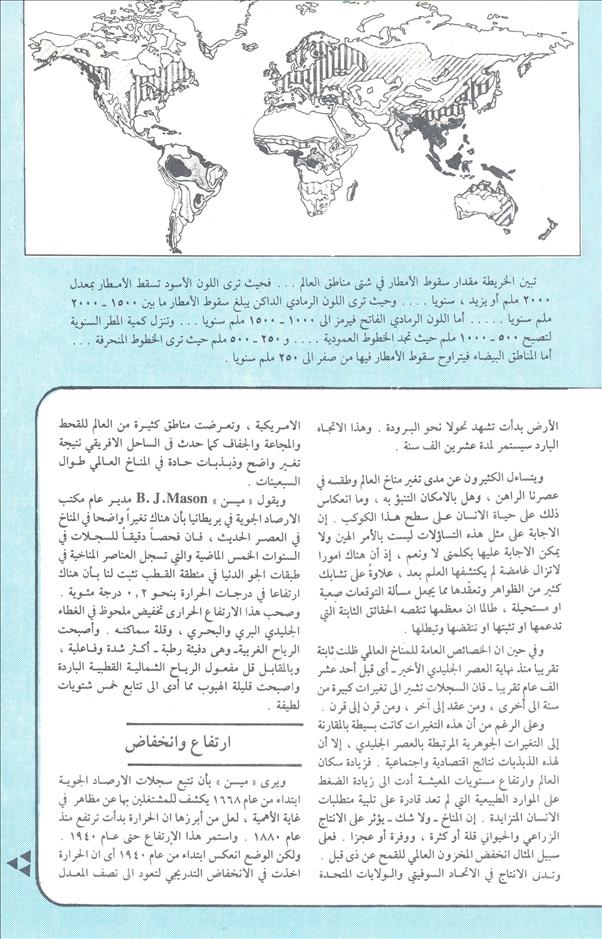 تبين الخريطة مقدار سقوط الأمطار في شتى مناطق العالم ... فحيث ترى اللون الأسود تسقط الأمطار بمعدل
٢٠٠٠ ملم أو يزيد ، سنويا .... وحيث ترى اللون الرمادي الداكن يبلغ سقوط الأمطار ما بين ١٥٠٠ ـ ٢٠٠٠
ملم سنويا ..... أما اللون الرمادي الفاتح فيرمز الى ١٠٠٠ ـ ١٥٠٠ ملم سنويا ... وتنزل كمية المطر السنوية
لتصبح ٥٠٠ ـ ١٠٠٠ ملم حيث تجد الخطوط العمودية .... و ٢٥٠ ـ ٥٠٠ ملم حيث ترى الخطوط المنحرفة ...
أما المناطق البيضاء فيتراوح سقوط الأمطار فيها من صفر الى ٢٥٠ ملم سنويا .
الأرض بدأت تشهد تحولا نحو البرودة . وهذا الاتجاه
البارد سيستمر لمدة عشرين الف سنة .
ويتساءل الكثيرون عن مدى تغير مناخ العالم وطقسه في
عصرنا الراهن ، وهل بالامكان التنبؤ به ، وما انعكاس
ذلك على حياة الانسان على سطح هذا الكوكب . إن
الاجابة على مثل هذه التساؤلات ليست بالأمر الهين ولا
يمكن الاجابة عليها بكلمتي لا ونعم ، إذ أن هناك امورا
لاتزال غامضة لم يكتشفها العلم بعد ، علاوة على تشابك
كثير من الظواهر وتعقدها مما يجعل مسألة التوقعات صعبة
او مستحيلة ، طالما ان معظمها تنقصه الحقائق الثابتة التي
تدعمها او تثبتها او تنقضها وتبطلها .
وفي حين ان الخصائص العامة للمناخ العالمي ظلت ثابتة
تقريبا منذ نهاية العصر الجليدي الأخير ـ أى قبل أحد عشر
الف عام تقريبا ـ فان السجلات تشير الى تغيرات كبيرة من
سنة الى أخرى ، ومن عقد إلى آخر ، ومن قرن إلى قرن .
وعلى الرغم من أن هذه التغيرات كانت بسيطة بالمقارنة
إلى التغيرات الجوهرية المرتبطة بالعصر الجليدي ، إلا أن
لهذه الذبذبات نتائج اقتصادية واجتماعية . فزيادة سكان
العالم وارتفاع مستويات المعيشة أدت الى زيادة الضغط
على الموارد الطبيعية التي لم تعد قادرة على تلبية متطلبات
الانسان المتزايدة . إن المناخ ـ ولا شك ـ يؤثر على الانتاج
الزراعي والحيواني قلة أو كثرة ، ووفرة أو عجزا . فعلى
سبيل المثال انخفض المخزون العالمي للقمح عن ذي قبل .
وتدنى الانتاج في الاتحاد السوفيتي والولايات المتحدة
الامريكية ، وتعرضت مناطق كثيرة من العالم للقحط
والمجاعة والجفاف كما حدث في الساحل الافريقي نتيجة
تغير واضح وذبذبات حادة في المناخ العالمي طوال
السبعينات .
ويقول « ميسن » B. J. Mason مدير عام مكتب
الارصاد الجوية في بريطانيا بأن هناك تغيراً واضحا في المناخ
في العصر الحديث ، فان فحصاً دقيقاً للسجلات في
السنوات الخمس الماضية والتي تسجل العناصر المناخية في
طبقات الجو الدنيا في منطقة القطب تثبت لنا بأن هناك
ارتفاعا في درجات الحرارة بنحو ٠,٢ درجة مئوية .
وصحب هذا الارتفاع الحرارى تخفيض ملحوظ في الغطاء
الجليدي البري والبحري ، وقلة سماكته . وأصبحت
الرياح الغربية ـ وهى دفيئة رطبة ـ أكثر شدة وفاعلية ،
وبالمقابل قل مفعول الرياح الشمالية القطبية الباردة
واصبحت قليلة الهبوب مما أدى الى تتابع خمس شتويات
لطيفة .
ارتفاع وانخفاض
ويرى « ميسن » بأن تتبع سجلات الارصاد الجوية
ابتداء من عام ١٦٦٨ يكشف للمشتغلين بها عن مظاهر في
غاية الأهمية ، لعل من أبرزها ان الحرارة بدأت ترتفع منذ
عام ١٨٨٠ . واستمر هذا الإرتفاع حتى عام ١٩٤٠ .
ولكن الوضع انعكس ابتداء من عام ١٩٤٠ أى ان الحرارة
اخذت في الانخفاض التدريجي لتعود الى نصف المعدل